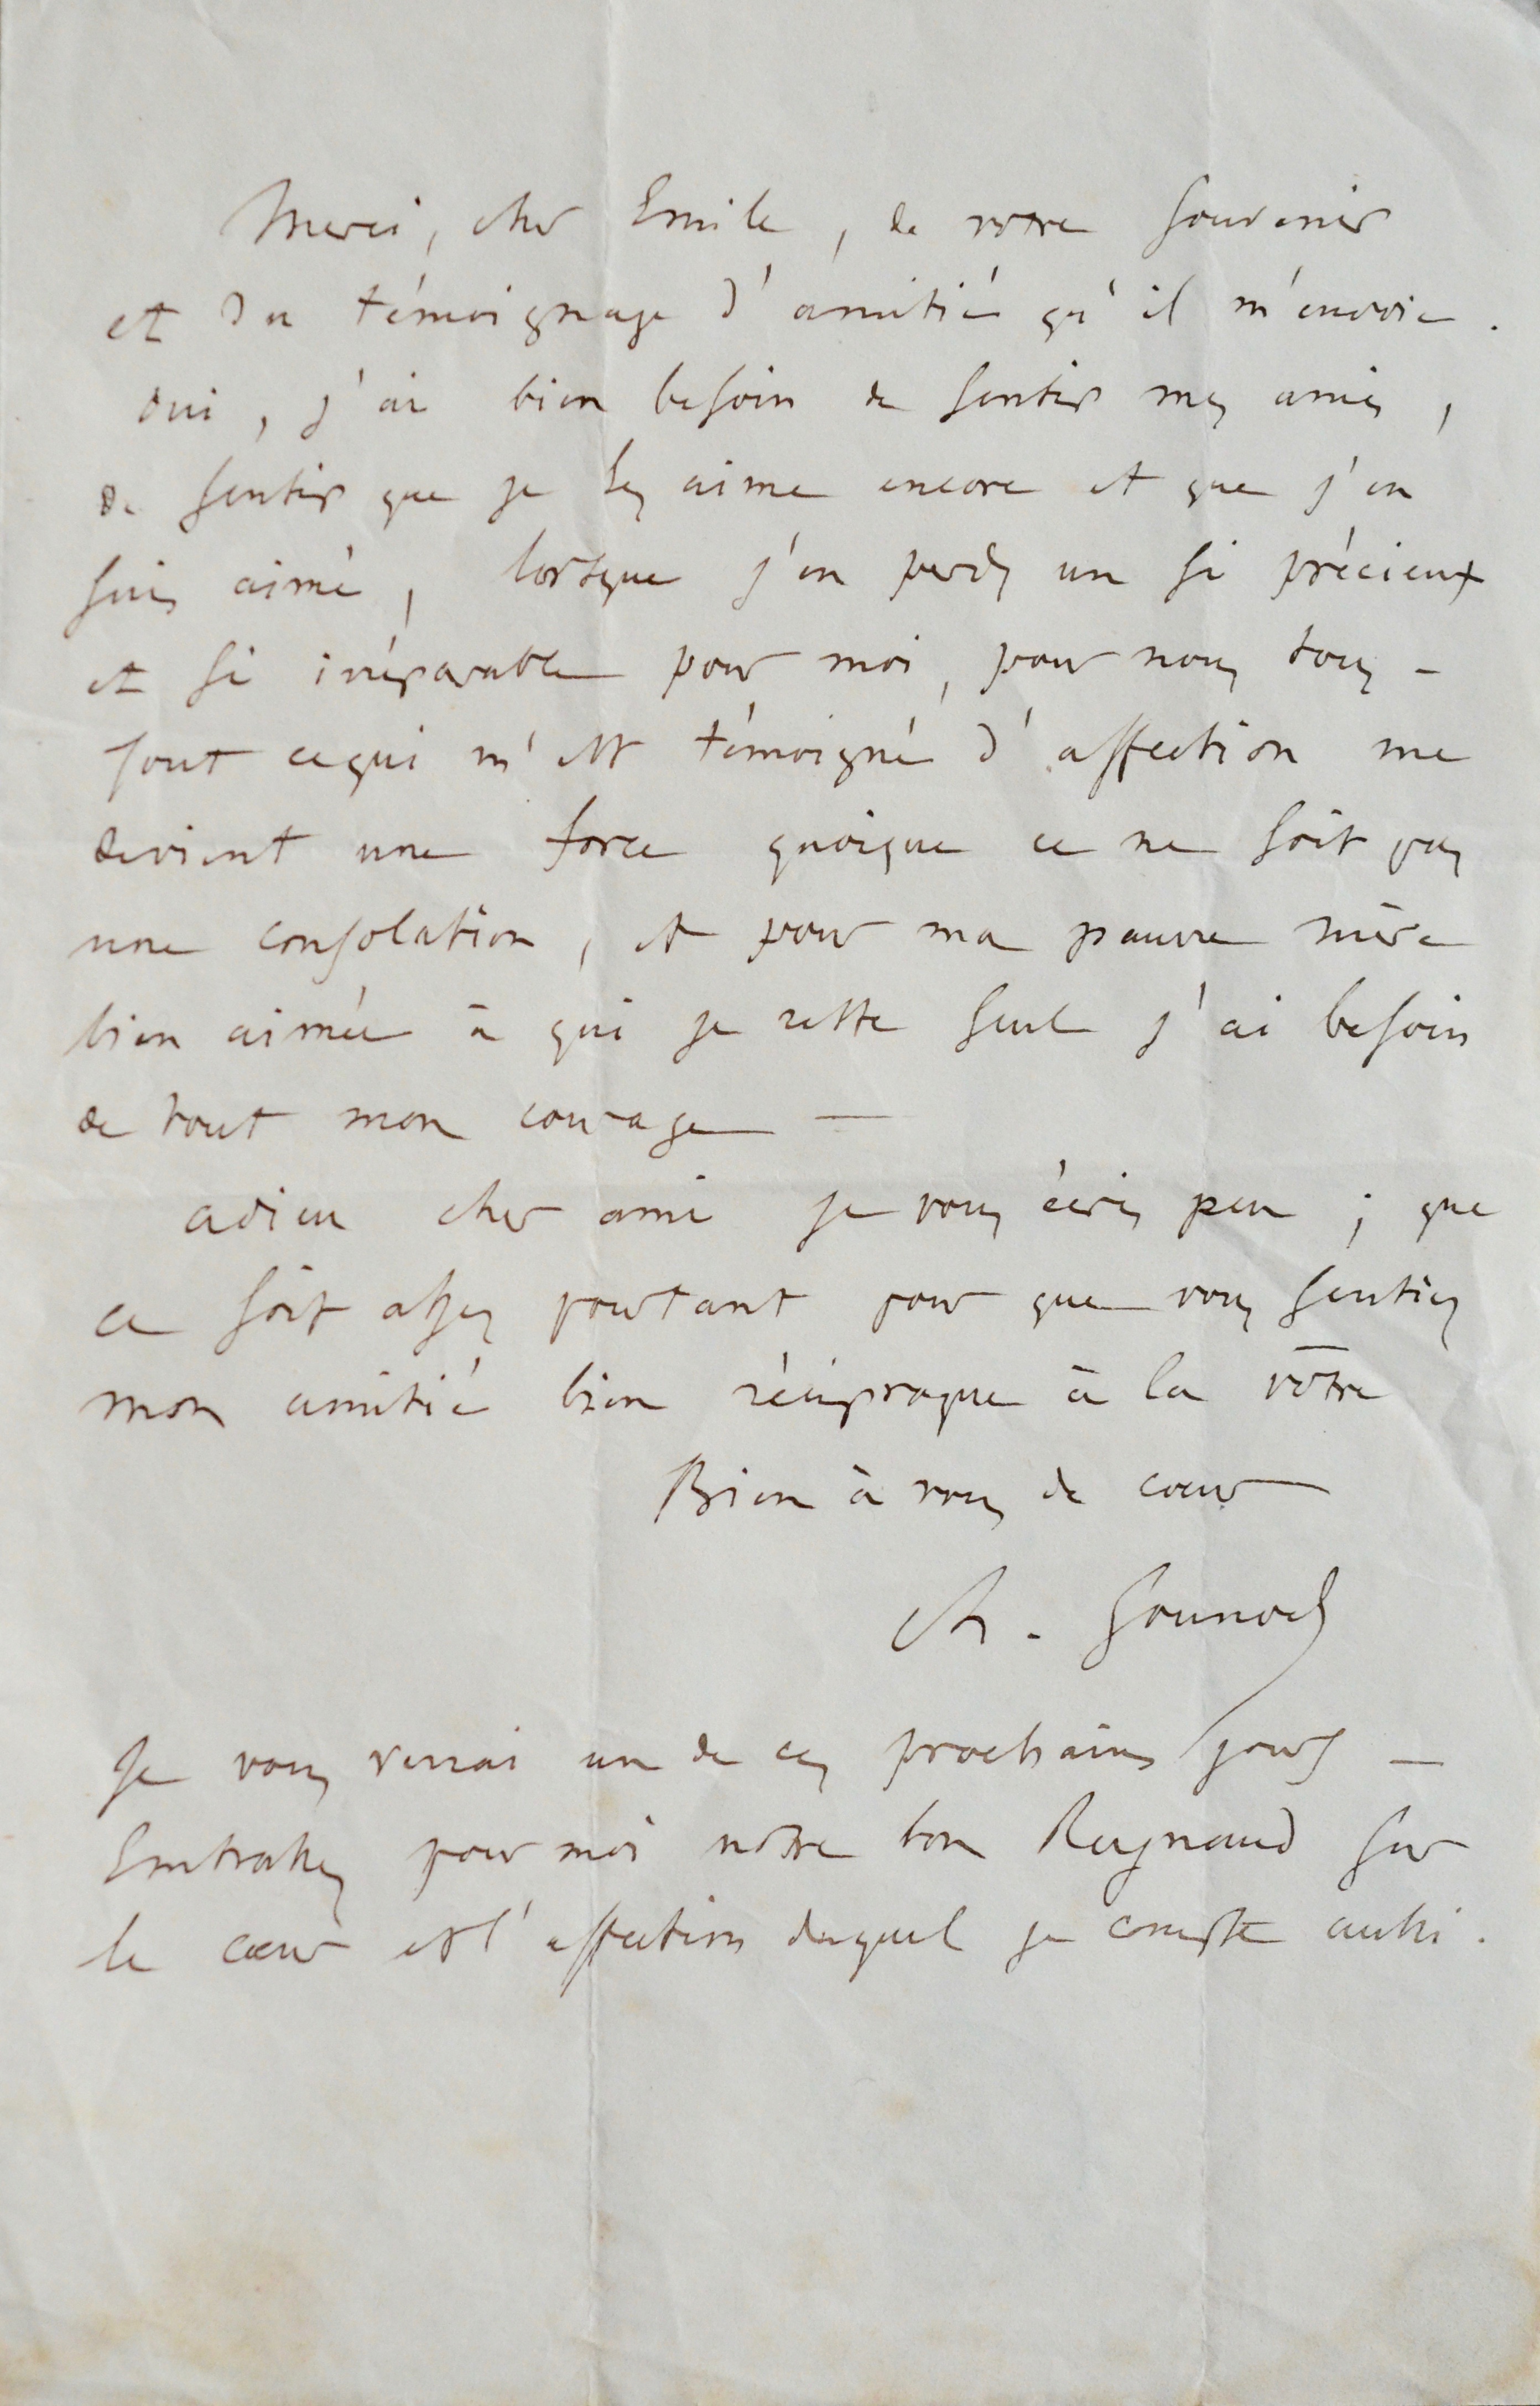 Merci, cher Emile, de votre souvenir
et du témoignage d'amitié qu'il m'envoie.
oui, j'ai bien besoin de sentir mes amis,
de sentir que je les aime encore et que j'en
suis aimé, lorsque j'en perds un si précieux
et si irréparable pour moi, pour nous tous -
Tout ce qui m'est témoigné d'affection me
devient une force quoique ce ne soit pas
une consolation, et pour ma pauvre mère
bien aimée à qui je reste seul j'ai besoin
de tout mon courage —
adieu cher ami je vous écris peu ; que
ce soit assez pourtant pour que vous sentiez
mon amitié bien réciproque à la vôtre
Bien à vous de cœur
Ch. Gounod
Je vous verrai un de ces prochains jours —
Embrassez pour moi notre bon Reynaud sur
le cœur et l'affection duquel je compte aussi.